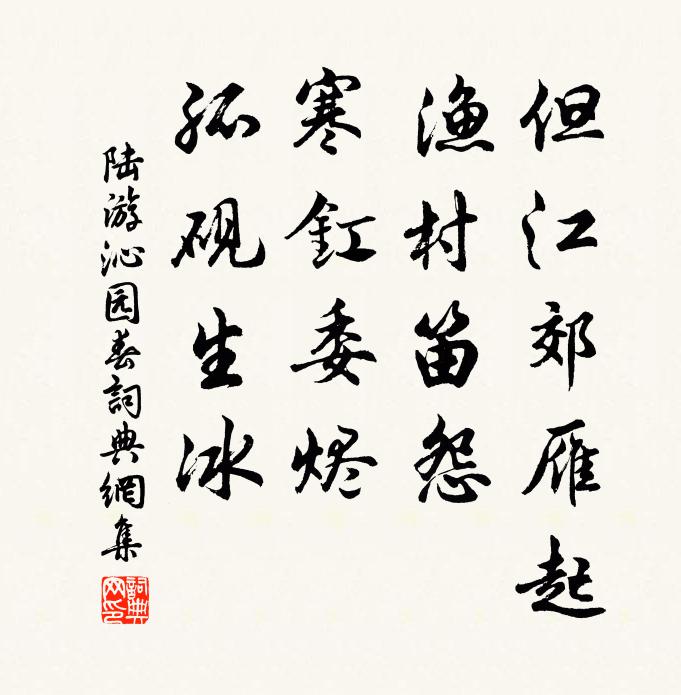 但江郊雁起
渔村笛怨
寒釭委烬
孤砚生冰
陆游沁园春詞典網集
詞典